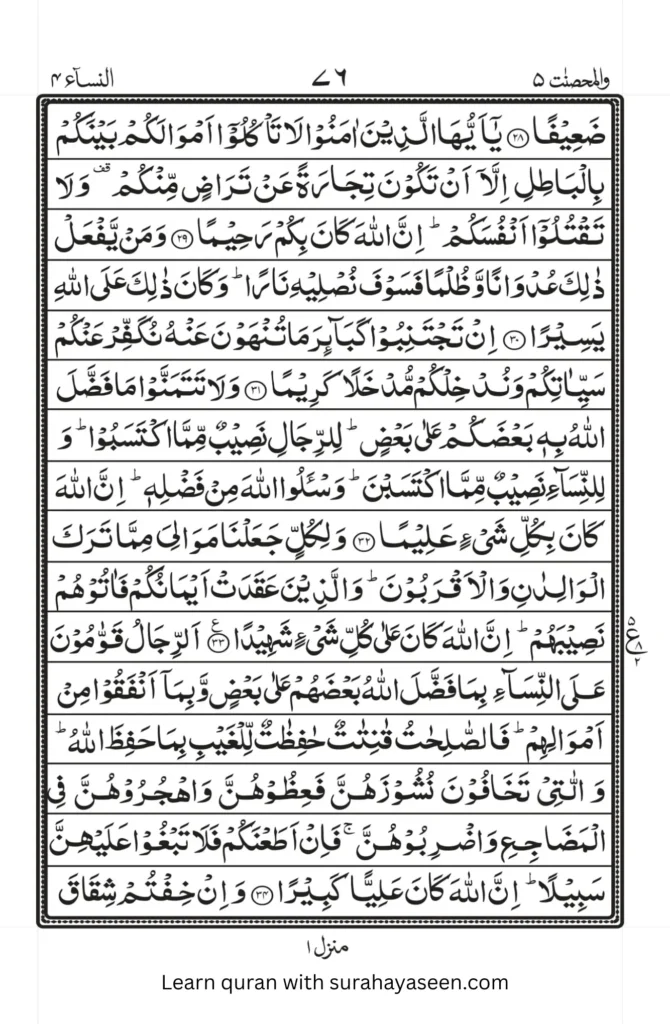 والمحصنت ۵ ۷۶ النسآء ۴
ضَعِيْفًا ﴿۲۸﴾ يٰۤاَيُّهَا الَّذِيْنَ اٰمَنُوْا لَا تَاْكُلُوْۤا اَمْوَالَكُمْ بَيْنَكُمْ
بِالْبَاطِلِ اِلَّاۤ اَنْ تَكُوْنَ تِجَارَةً عَنْ تَرَاضٍ مِّنْكُمْ ۟ وَلَا
تَقْتُلُوْۤا اَنْفُسَكُمْ ؕ اِنَّ اللّٰهَ كَانَ بِكُمْ رَحِيْمًا ﴿۲۹﴾ وَمَنْ يَّفْعَلْ
ذٰلِكَ عُدْوَانًا وَّظُلْمًا فَسَوْفَ نُصْلِيْهِ نَارًا ؕ وَكَانَ ذٰلِكَ عَلَى اللّٰهِ
يَسِيْرًا ﴿۳۰﴾ اِنْ تَجْتَنِبُوْا كَبَآئِرَ مَا تُنْهَوْنَ عَنْهُ نُكَفِّرْ عَنْكُمْ
سَيِّاٰتِكُمْ وَنُدْخِلْكُمْ مُّدْخَلًا كَرِيْمًا ﴿۳۱﴾ وَلَا تَتَمَنَّوْا مَا فَضَّلَ
اللّٰهُ بِهٖ بَعْضَكُمْ عَلٰى بَعْضٍ ؕ لِلرِّجَالِ نَصِيْبٌ مِّمَّا اكْتَسَبُوْا ؕ وَ
لِلنِّسَآءِ نَصِيْبٌ مِّمَّا اكْتَسَبْنَ ؕ وَسْـَٔلُوا اللّٰهَ مِنْ فَضْلِهٖ ؕ اِنَّ اللّٰهَ
كَانَ بِكُلِّ شَىْءٍ عَلِيْمًا ﴿۳۲﴾ وَلِكُلٍّ جَعَلْنَا مَوَالِىَ مِمَّا تَرَكَ
الْوَالِدٰنِ وَالْاَقْرَبُوْنَ ؕ وَالَّذِيْنَ عَقَدَتْ اَيْمَانُكُمْ فَاٰتُوْهُمْ
نَصِيْبَهُمْ ؕ اِنَّ اللّٰهَ كَانَ عَلٰى كُلِّ شَىْءٍ شَهِيْدًا ﴿۳۳﴾ ع اَلرِّجَالُ قَوّٰمُوْنَ
ع ۵ ۸ ۲
عَلَى النِّسَآءِ بِمَا فَضَّلَ اللّٰهُ بَعْضَهُمْ عَلٰى بَعْضٍ وَّبِمَاۤ اَنْفَقُوْا مِنْ
اَمْوَالِهِمْ ؕ فَالصّٰلِحٰتُ قٰنِتٰتٌ حٰفِظٰتٌ لِّلْغَيْبِ بِمَا حَفِظَ اللّٰهُ ؕ
وَ الّٰتِىْ تَخَافُوْنَ نُشُوْزَهُنَّ فَعِظُوْهُنَّ وَاهْجُرُوْهُنَّ فِى
الْمَضَاجِعِ وَاضْرِبُوْهُنَّ ۚ فَاِنْ اَطَعْنَكُمْ فَلَا تَبْغُوْا عَلَيْهِنَّ
سَبِيْلًا ؕ اِنَّ اللّٰهَ كَانَ عَلِيًّا كَبِيْرًا ﴿۳۴﴾ وَ اِنْ خِفْتُمْ شِقَاقَ
منزل ۱
Learn quran with surahayaseen.com